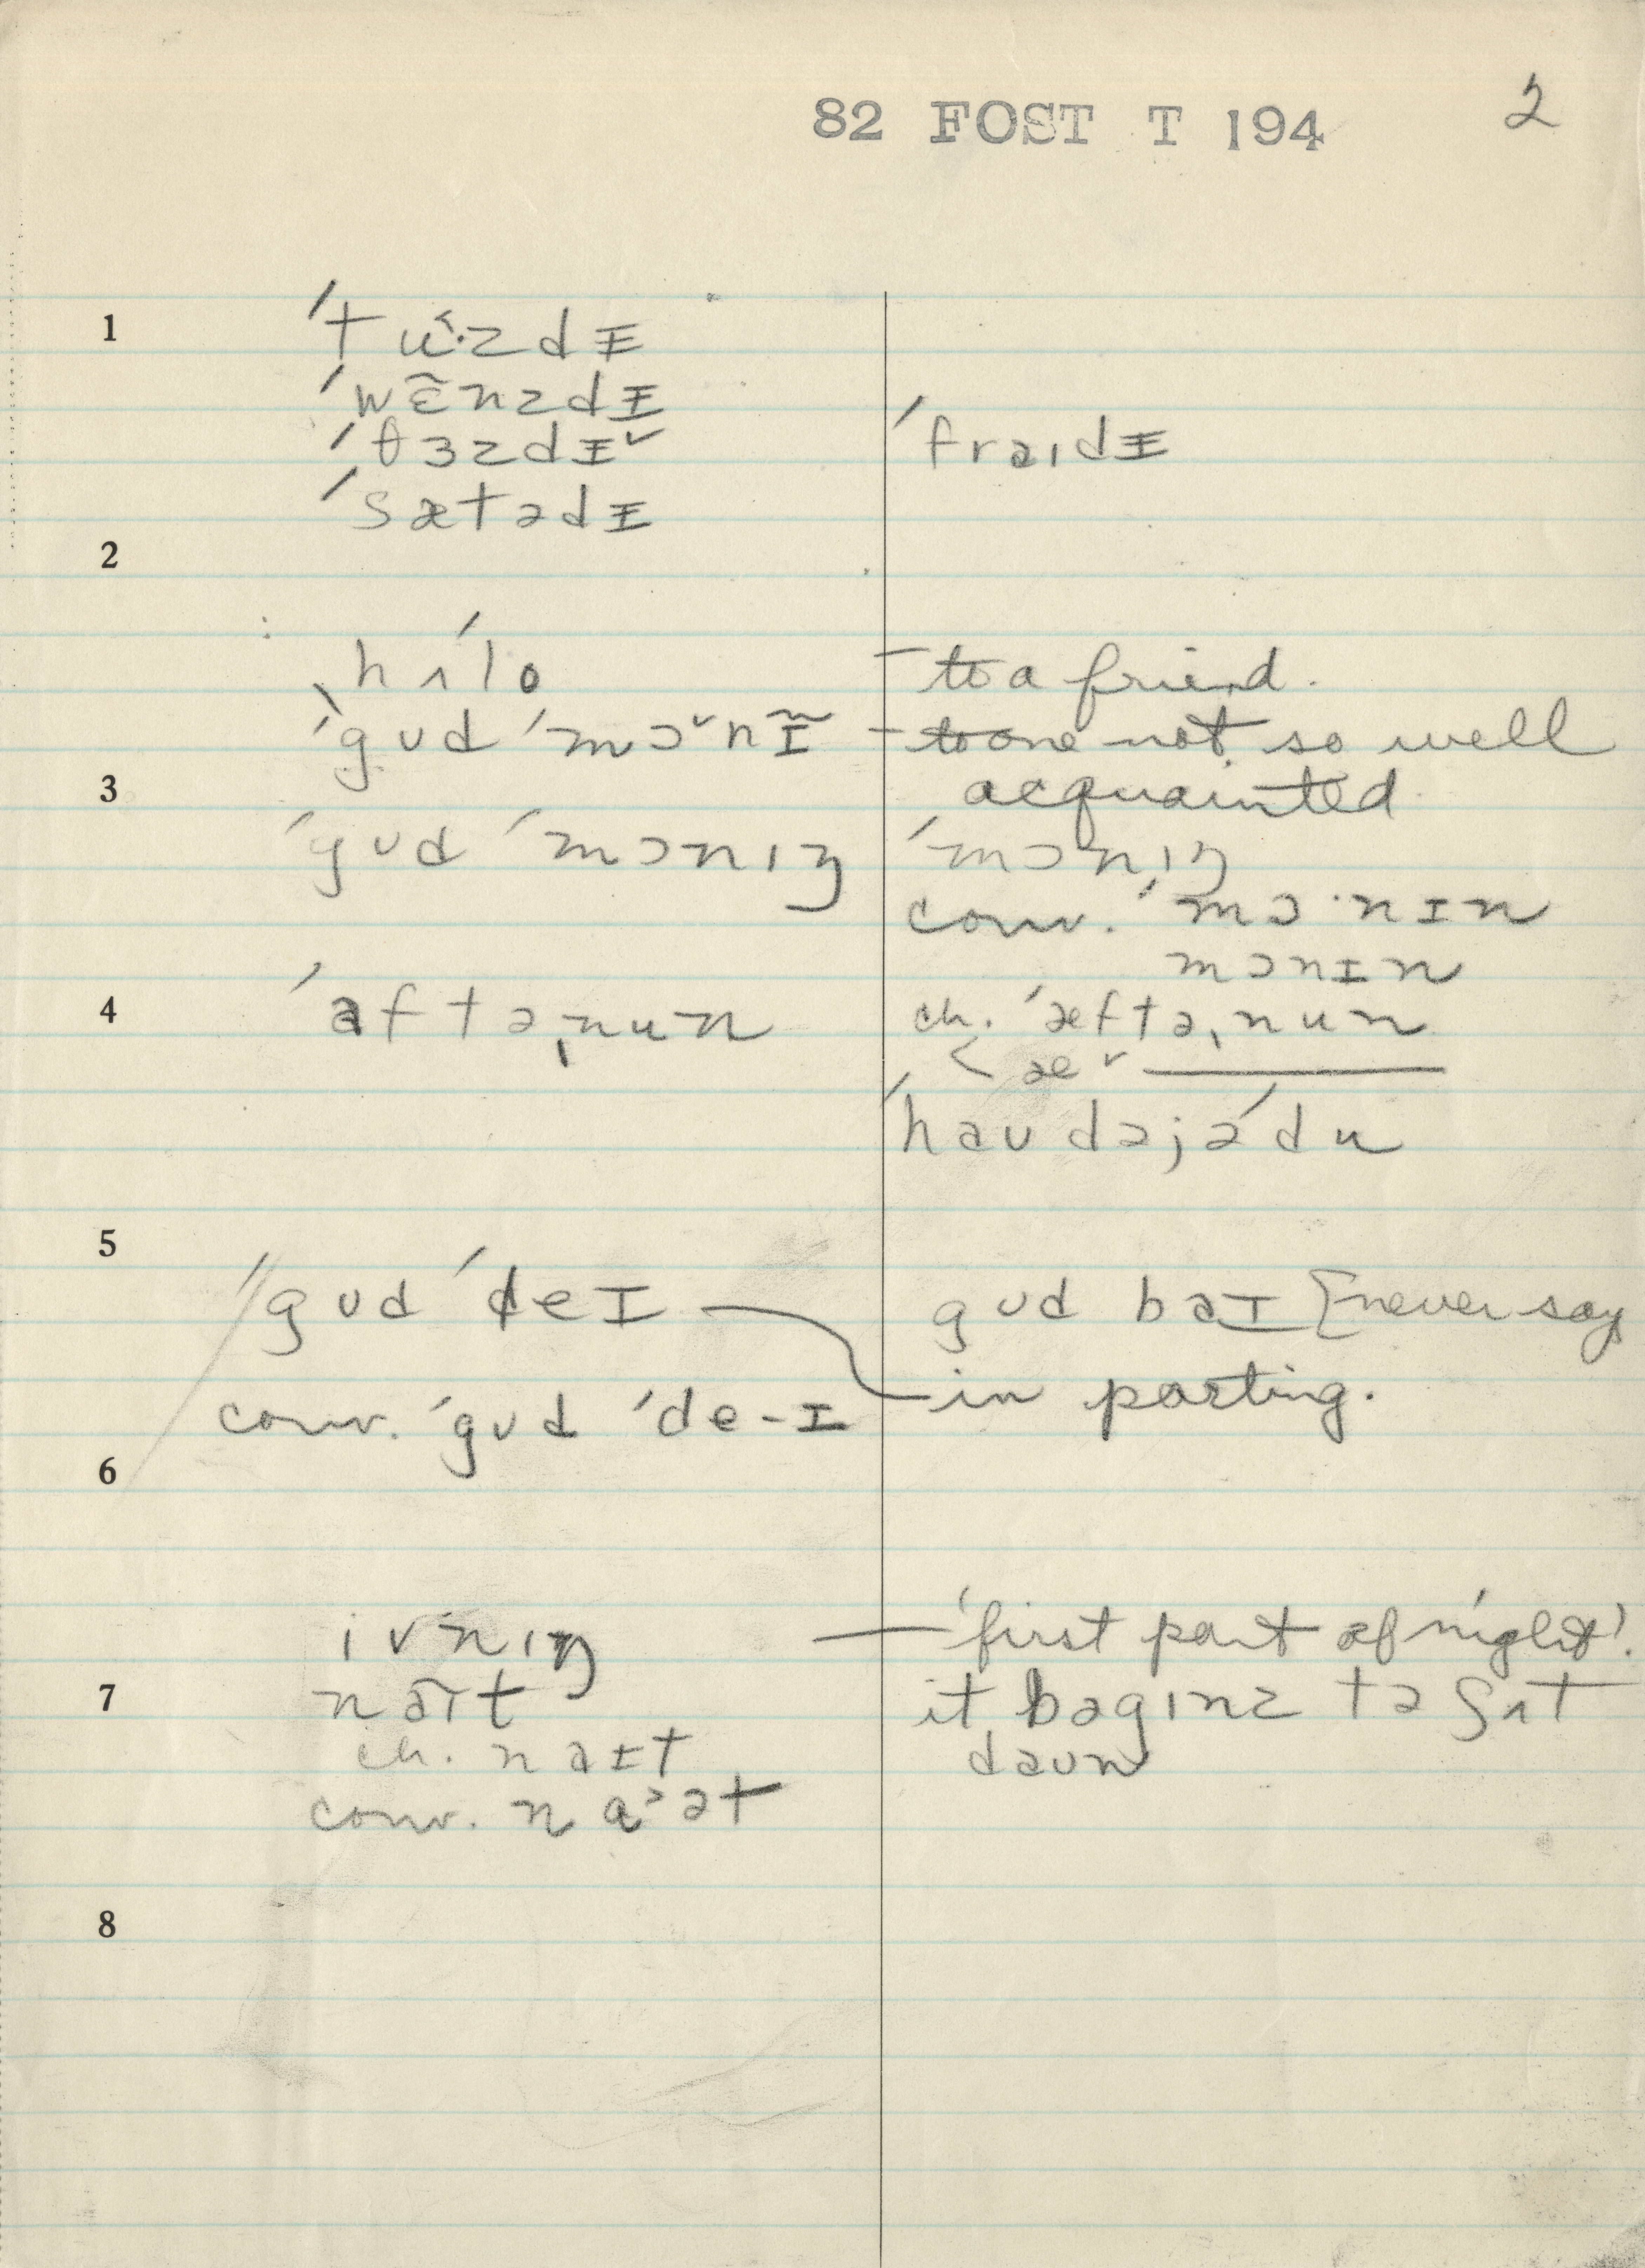 82 FOST T 194
2
1
ˈtu˂·zdᵻ
ˈwɛ̃nzdᵻ
ˈθɜzdᵻˇ
ˈfraɪdᵻ
ˈsætədᵻ
2
ˌhʌˈlo – to a friend.
ˈgʊd ˈmɔˇnɪ̃ – to one not so well
3
acquainted
ˈgʊd ˈmɔnɪŋ
ˈmɔnɪŋ
conv. ˈmɔ·nɪn
mɔnɪn
4
ˈaftəˌnun
ch. ˈæftəˌnun
< æˇ ———
ˈhaʊdəjəˈdu
5
ˈˈgʊd ˈdeɪ — in parting.
gʊd baɪ [never say
conv. ˈgʊd ˈde-ɪ
6
ivnɪŋ — 'first part of night'.
7
naɪt
it bəgɪnz tə sʌt
daʊn
ch. naɪt
conv. na˃ət
8